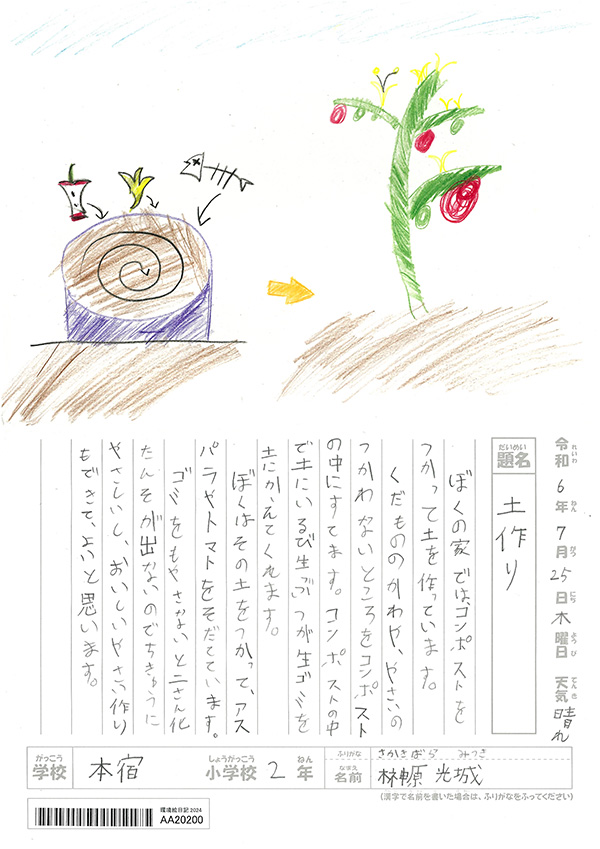 令和6年7月25日木曜日 天気晴れ
れいわ ねん がつ にち ようび てんき
だいめい
題名
土作り
ぼくの家では、コンポストを
つかって土を作っています。
くだもののかわや、やさいの
つかわないところをコンポスト
の中にすてます。コンポストの中
で土にいるび生ぶつが生ゴミを
土にかえてくれます。
ぼくはその土をつかって、アス
パラやトマトをそだてています。
ゴミをもやさないと二さん化
たんそが出ないのでちきゅうに
やさしいし、おいしいやさい作り
もできて、よいと思います。
がっこう しょうがっこう ねん
学校 本宿 小学校 2年
ふりがな さかきばら みつき
なまえ
名前 榊原 光城
(漢字で名前を書いた場合は、ふりがなをふってください)
環境絵日記2024
AA20200